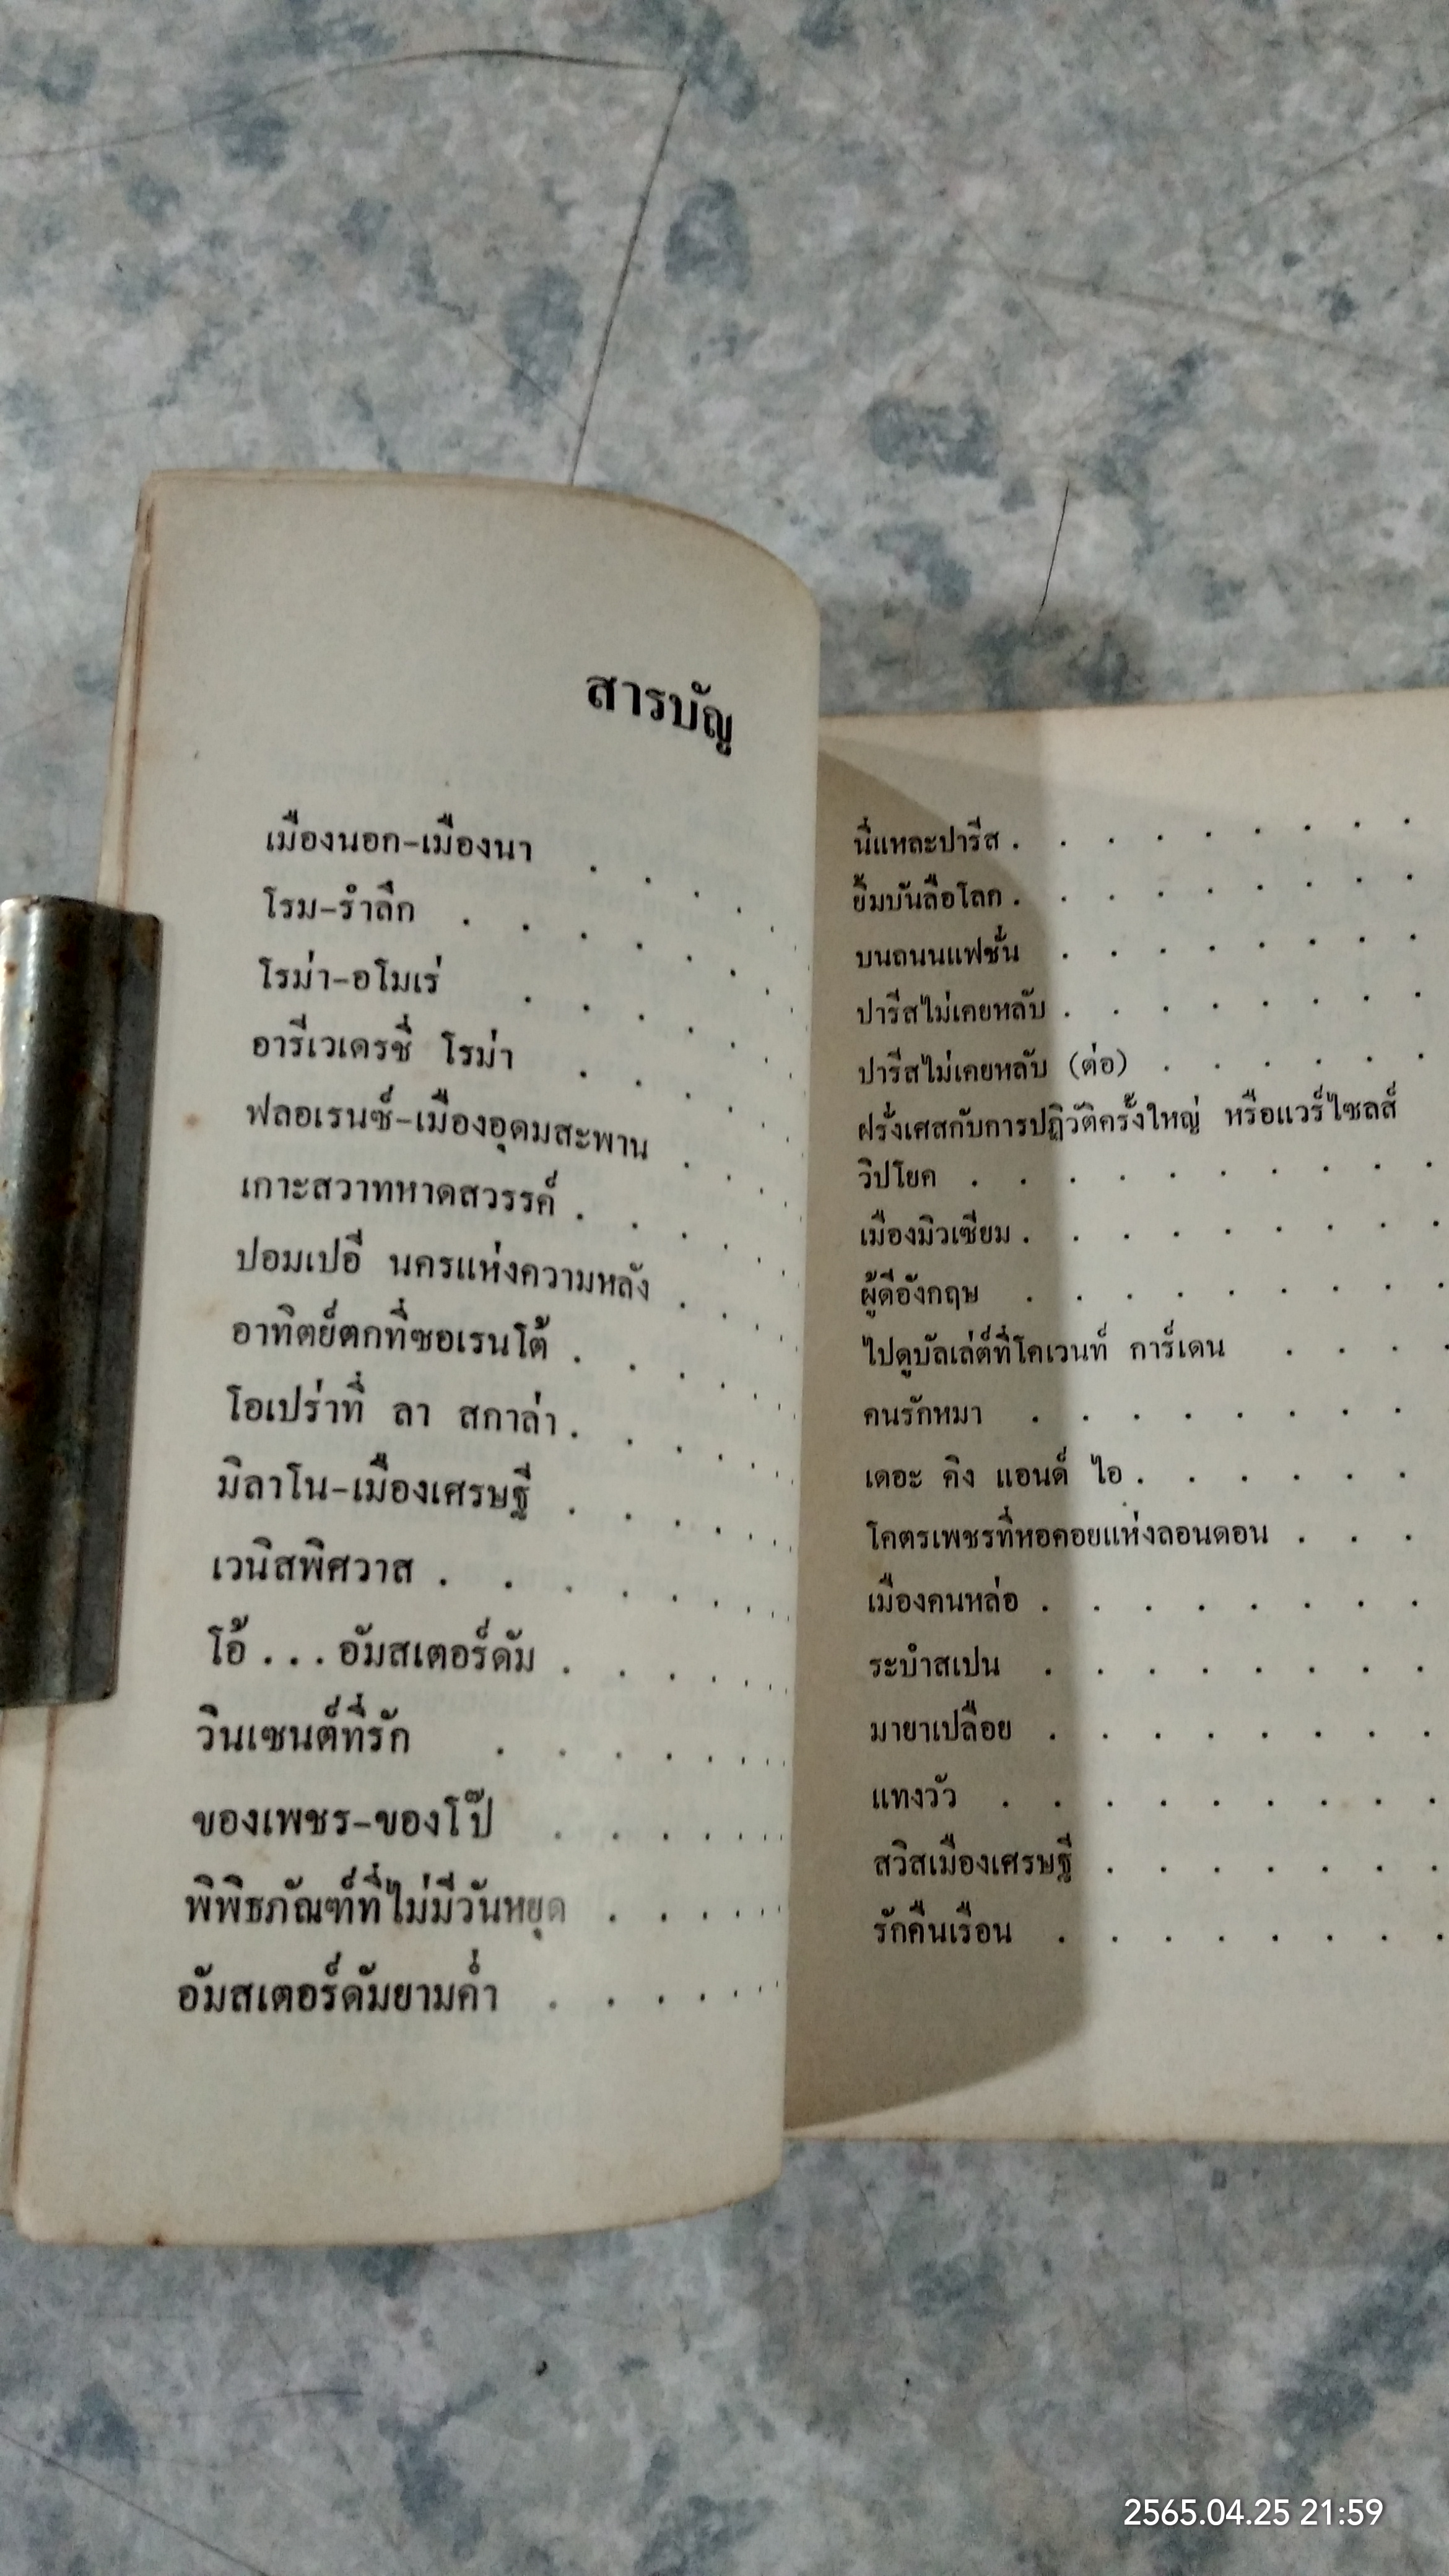 สารบัญ
เมืองนอก-เมืองนา . . . .
โรม-รำลึก . . . . . .
โรม่า-อโมเร่ . . . . . .
อารีเวเดรชี่ โรม่า . . . . .
ฟลอเรนซ์-เมืองอุดมสะพาน . . . .
เกาะสวาทหาดสวรรค์ . . . . .
ปอมเปอี นครแห่งความหลัง . . . .
อาทิตย์ตกที่ซอเรนโต้ . . . . . .
โอเปร่าที่ ลา สกาล่า . . . . . .
มิลาโน-เมืองเศรษฐี . . . . . .
เวนิสพิศวาส . . . . . . . .
โอ้ . . . อัมสเตอร์ดัม . . . . . .
วินเซนต์ที่รัก . . . . . . .
ของเพชร-ของโป๊ . . . . . . .
พิพิธภัณฑ์ที่ไม่มีวันหยุด . . . . . .
อัมสเตอร์ดัมยามค่ำ . . . . . . .
นี่แหละปารีส . . . . . . . . .
ยิ้มบันลือโลก . . . . . . . . .
บนถนนแฟชั่น . . . . . . . .
ปารีสไม่เคยหลับ . . . . . . . .
ปารีสไม่เคยหลับ (ต่อ) . . . . . .
ฝรั่งเศสกับการปฏิวัติครั้งใหญ่ หรือแวร์ไซลส์
วิปโยค . . . . . . . . . .
เมืองมิวเซียม . . . . . . . . .
ผู้ดีอังกฤษ . . . . . . . . .
ไปดูบัลเล่ต์ที่โคเวนท์ การ์เดน . . . .
คนรักหมา . . . . . . . .
เดอะ คิง แอนด์ ไอ . . . . . .
โคตรเพชรที่หอคอยแห่งลอนดอน . . .
เมืองคนหล่อ . . . . . . . .
ระบำสเปน . . . . . . . .
มายาเปลือย . . . . . . . .
แทงวัว . . . . . . . . .
สวิสเมืองเศรษฐี . . . . . . .
รักคืนเรือน . . . . . . . .
2565.04.25 21:59